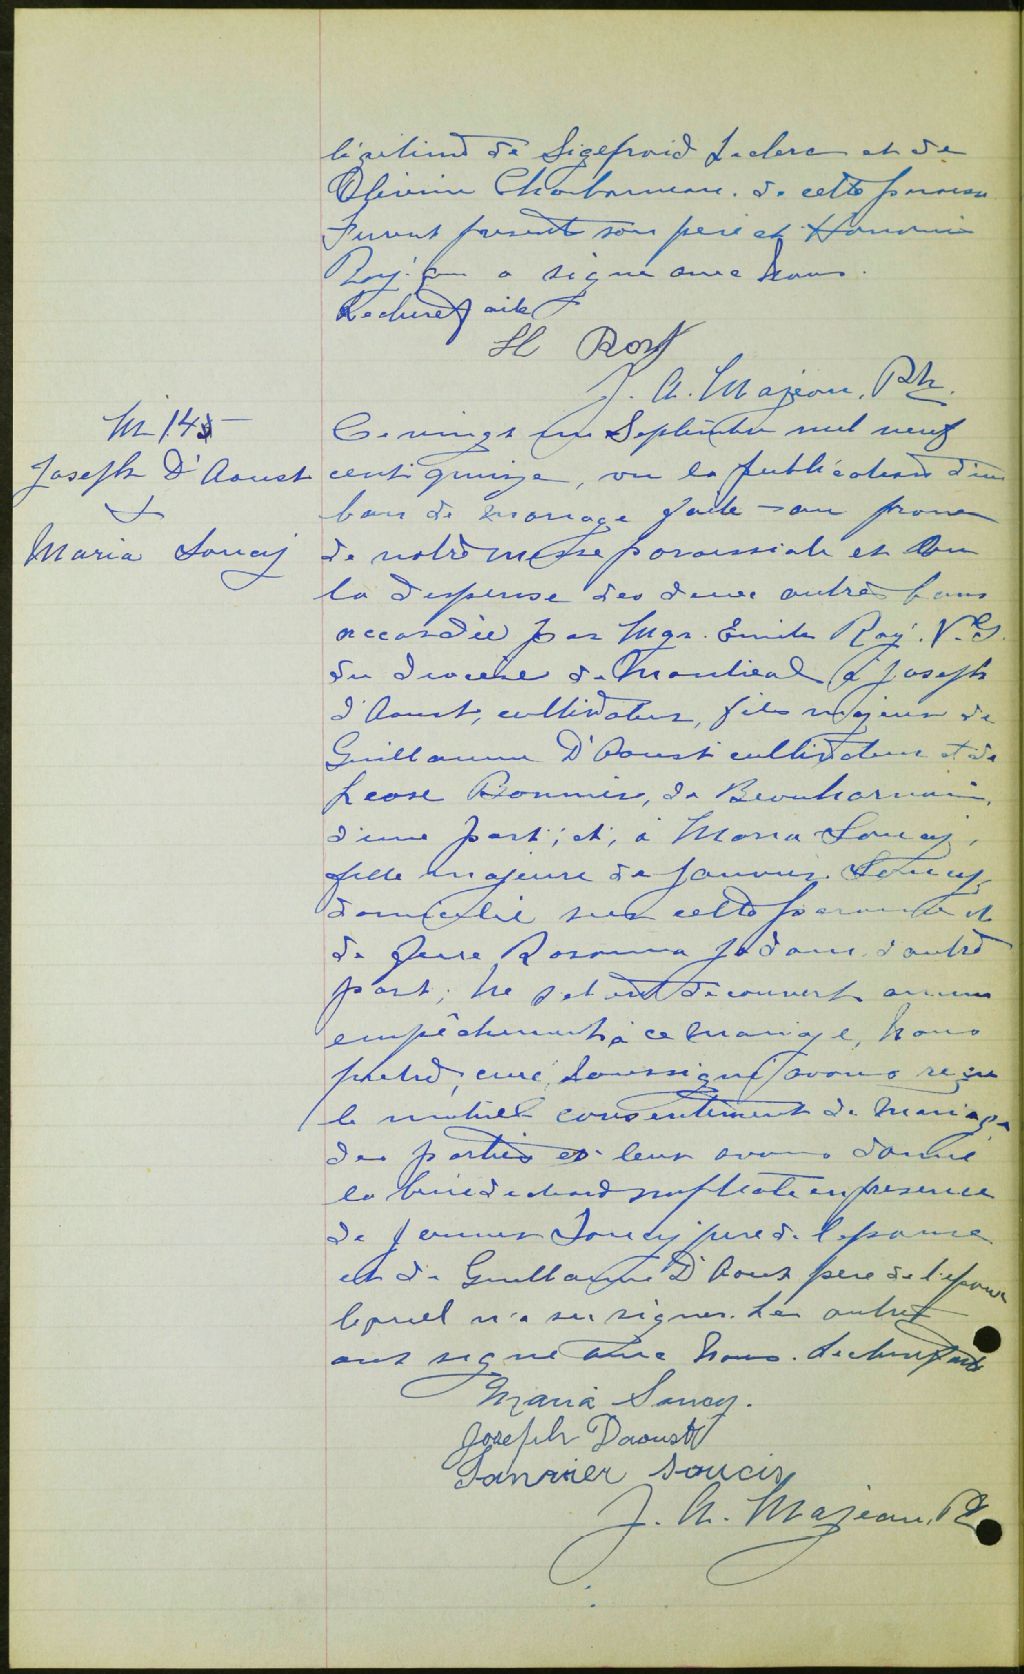 légitime de Sigefroid Leclerc et de
Olivine Charbonneau. de cette paroisse
Furent présents son père et Honorius
Roy. qui a signé avec nous.
Lecture faite
H Roy
J. A. Majeau, Ptr.
M 145
Joseph D'Aoust
+
Maria Soucy
Ce vingt un Septembre mil neuf
cent quinze, vu la publication d'un
ban de mariage faite au prone
de notre messe paroissiale et vu
la dispense des deux autres bans
accordée par Mgr. Emile Roy. V.G.
du diocèse de Montréal à Joseph
d'Aoust, cultivateur, fils majeur de
Guillaume D'Aoust cultivateur et de
de Beauharnois,
d'une part; et, à Maria Soucy,
fille majeure de Janvier Soucy,
domicilié sur cette paroisse et
de feue Rosanna d'autre
part; ne s'étant découvert aucun
empêchement à ce mariage, nous
prêtre, curé, soussigné avons reçu
le mutuel consentement de mariage
des parties et leur avons donné
la bénédiction nuptiale en présence
de Janvier Soucy père de l'épouse
et de Guillaume D'Aoust père de l'époux
lequel n'a su signer. Les autres
ont signé avec nous. Lecture faite
Maria Soucy.
Joseph Daoust
Janvier Soucis
J. A. Majeau, Pt